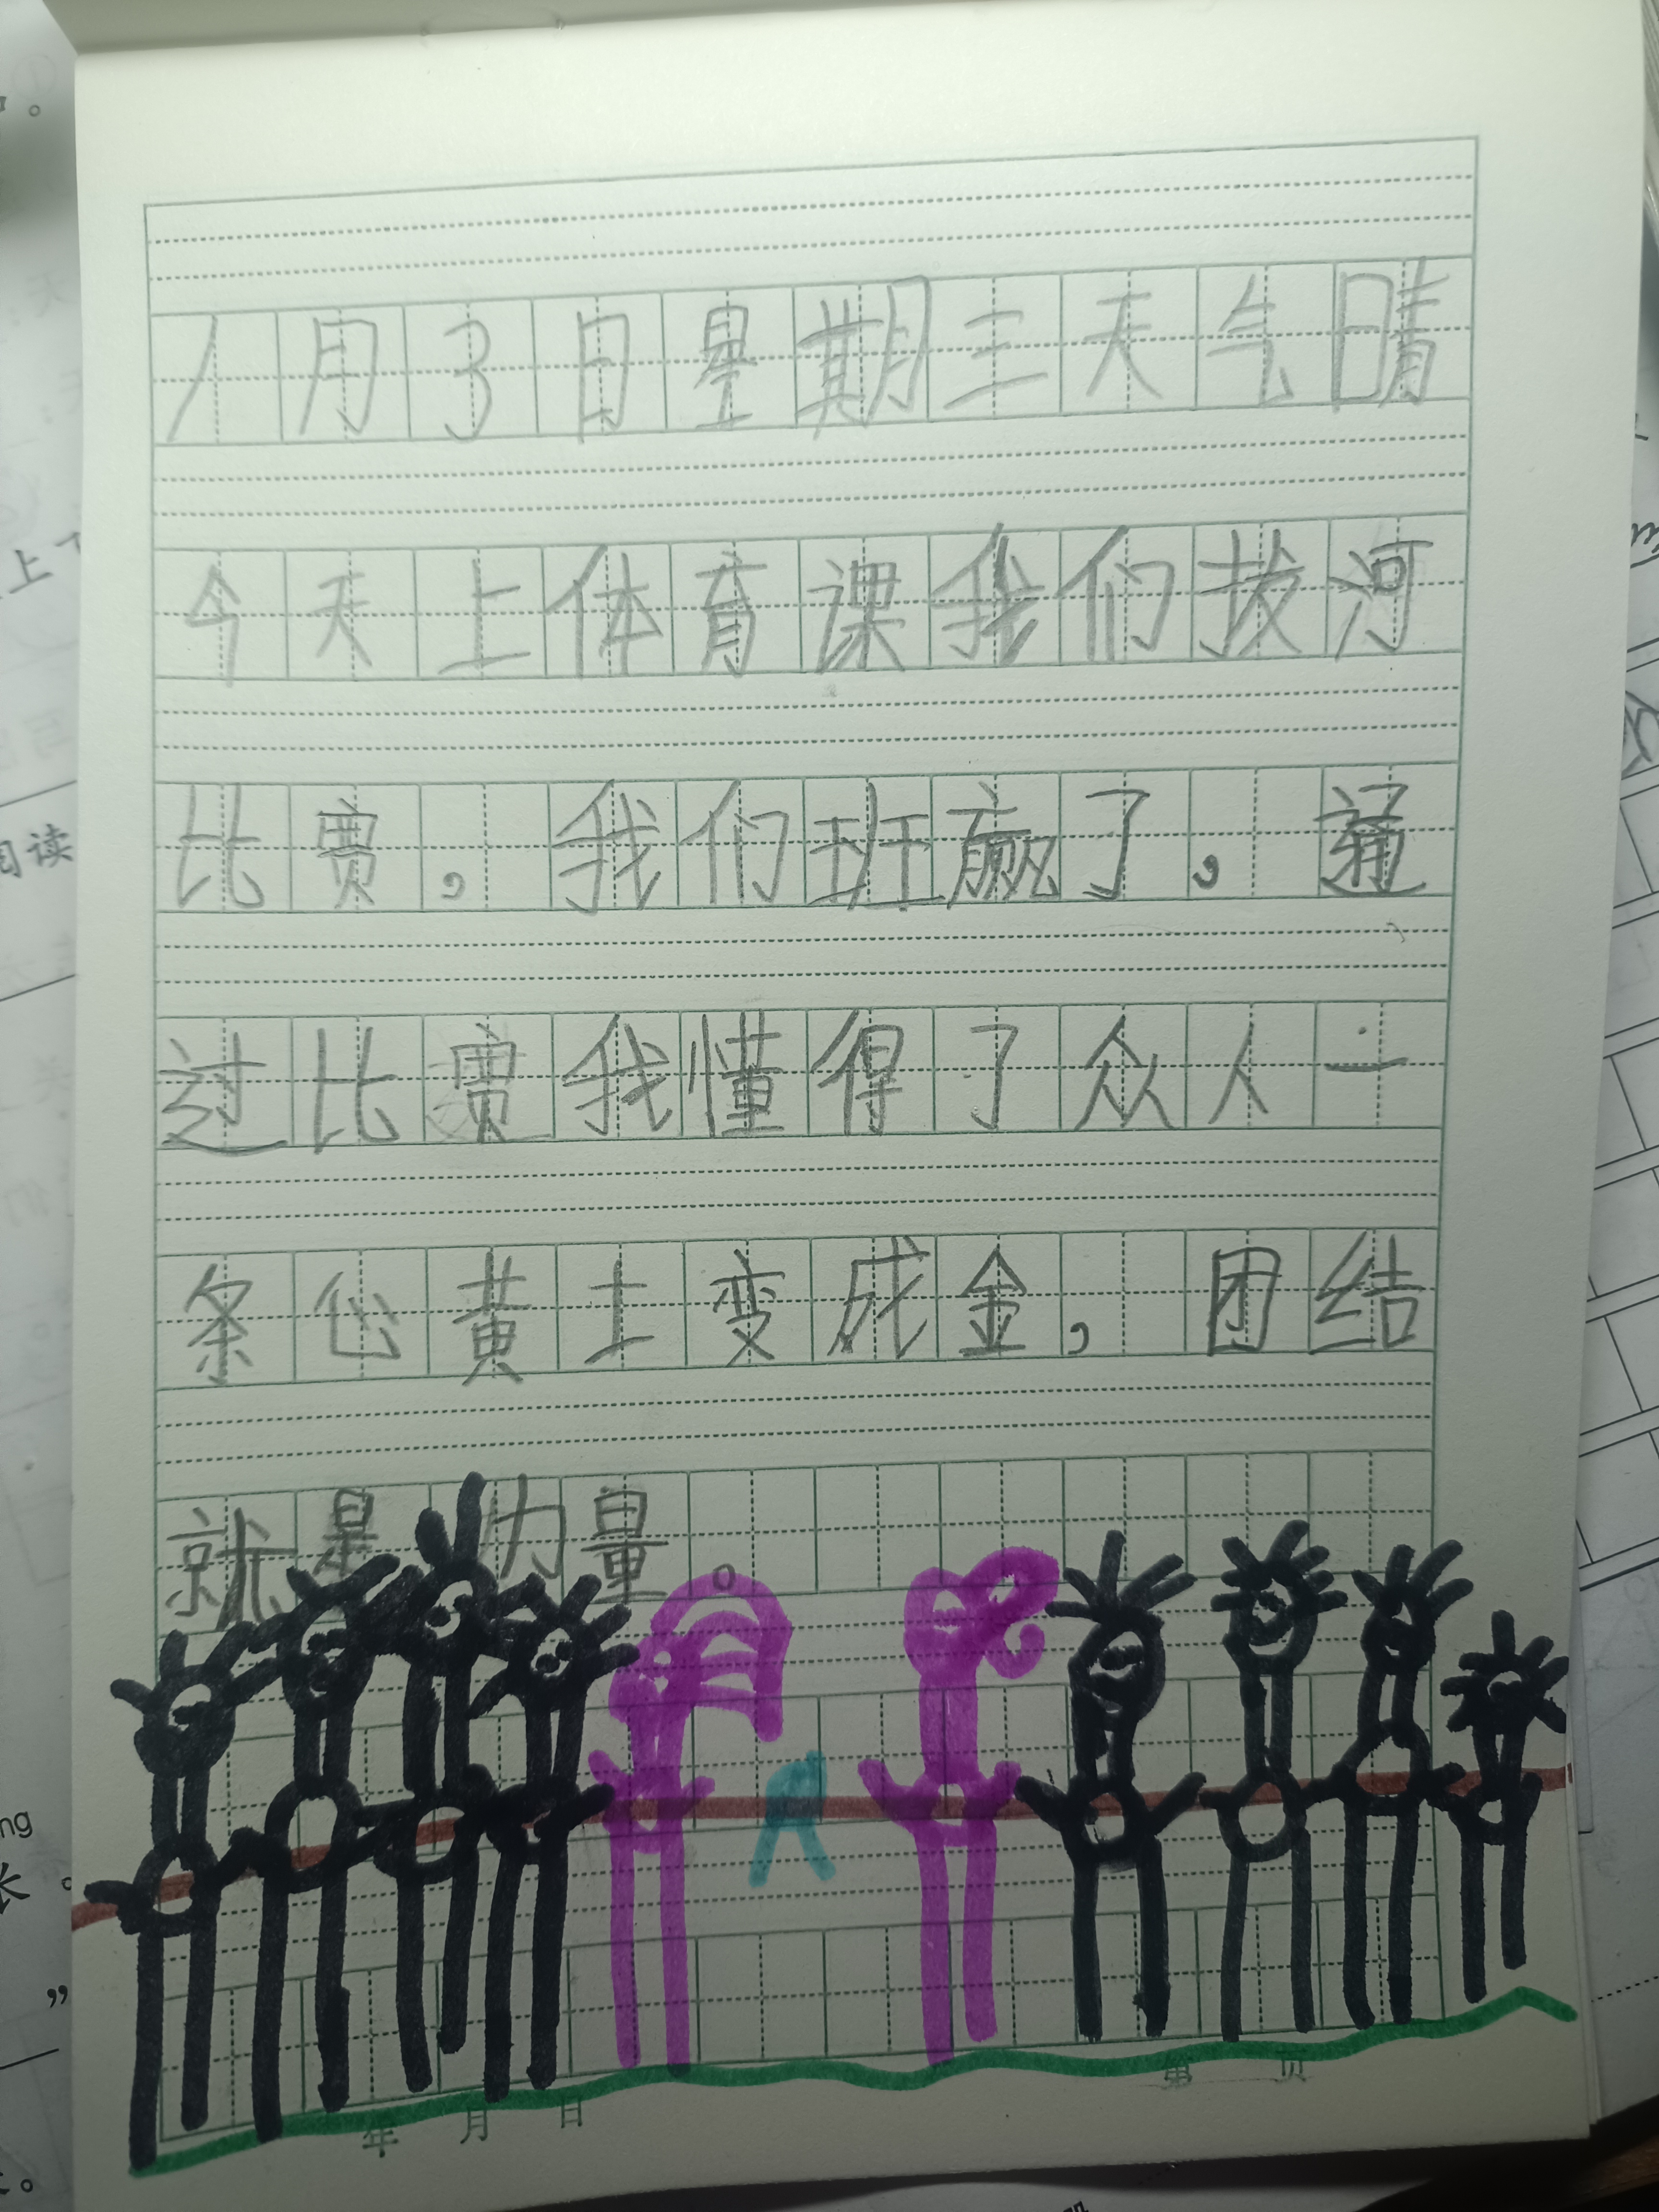 1月3日星期三天气晴
今天上体育课我们拔河
比赛，我们班赢了，通
过比赛我懂得了众人一
条心黄土变成金，团结
就是力量。
年 月 日 第 页
上
阅读
ng
长。
”